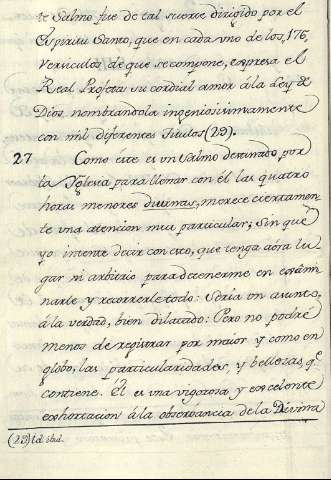 te Salmo fue de tal suerte dirigido por el
Espiritu Santo, que en cada uno de los, 176,
Versiculos, de que se compone, expresa el
Real Profeta su cordial amor à la Ley de
Dios nombrandola ingeniosissimamente
con mil diferentes titulos (29).
27 Como este es un Salmo destinado por
la Yglesia para llenar con èl las quatro
horas menores divinas, merece ciertamen-
te una atencion mui particular; Sin que
yo intente decir con esto, que tenga aora lu-
gar ni arbitrio para detenerme en exâmi-
narle y recorrerle todo: Seria un asunto,
à la verdad, bien dilatado: Pero no podrè
menos de registrar por maior y como en
globo, las particularidades, y bellezas, q.e
contiene. El es una vigorosa y excelente
exhortacion à la observancia de la Divina
(29) Id. ibid.